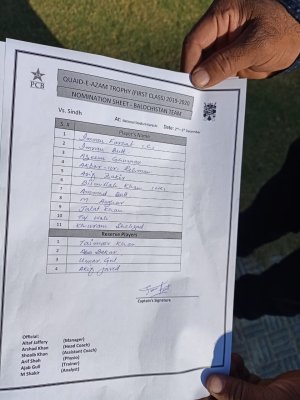 PCB
QUAID-E-AZAM TROPHY (FIRST CLASS) 2019-2020
NOMINATION SHEET - BALOCHISTAN TEAM
Vs. Sindh At: Date: 2nd - 5th December
S.# Player's Name
1 Imran Farhat (C)
2 Imran Butt
3
4 Akbar-ur-Rehman
5
6 Bismillah Khan
7 Ammad Butt
8 M. Asghar
9 Jalat Khan
10 Taj Wali
11 Khurram Shehzad
Reserve Players
1 Taimoor Khan
2
3 Umar Gul
4
Captain's Signature
Official:
Altaf Jaffery (Manager)
Arshad Khan (Head Coach)
Shoaib Khan (Assistant Coach)
Arif Shah (Physio)
Ajab Gull (Trainer)
M Shakir (Analyst)